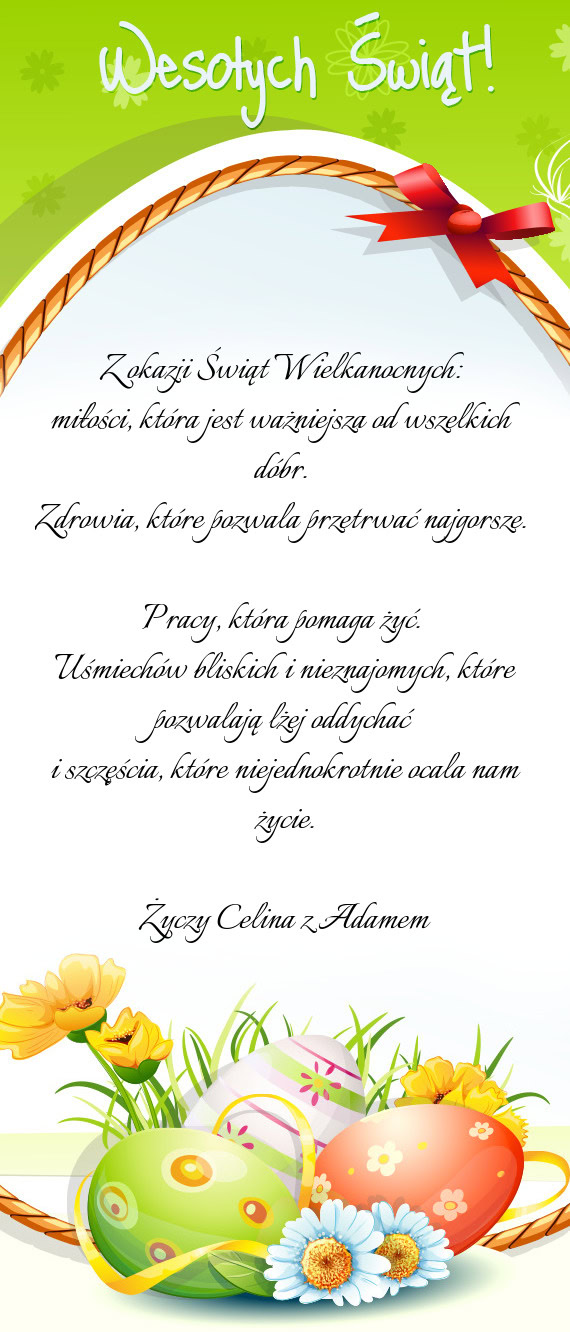 Wesołych Świąt!
Z okazji Świąt Wielkanocnych:
miłości, która jest ważniejsza od wszelkich
dóbr.
Zdrowia, które pozwala przetrwać najgorsze.
Pracy, która pomaga żyć.
Uśmiechów bliskich i nieznajomych, które
pozwalają lżej oddychać
i szczęścia, które niejednokrotnie ocala nam
życie.
Życzy Celina z Adamem